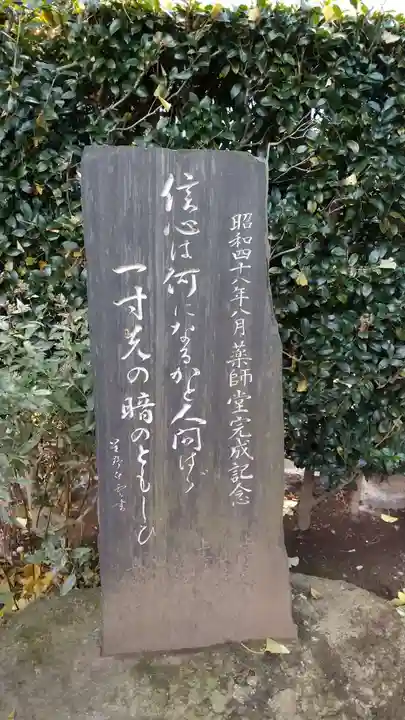 昭和四十八年八月薬師堂完成記念
信心は何になるかと人問はゞ
一寸先の暗のともしひ